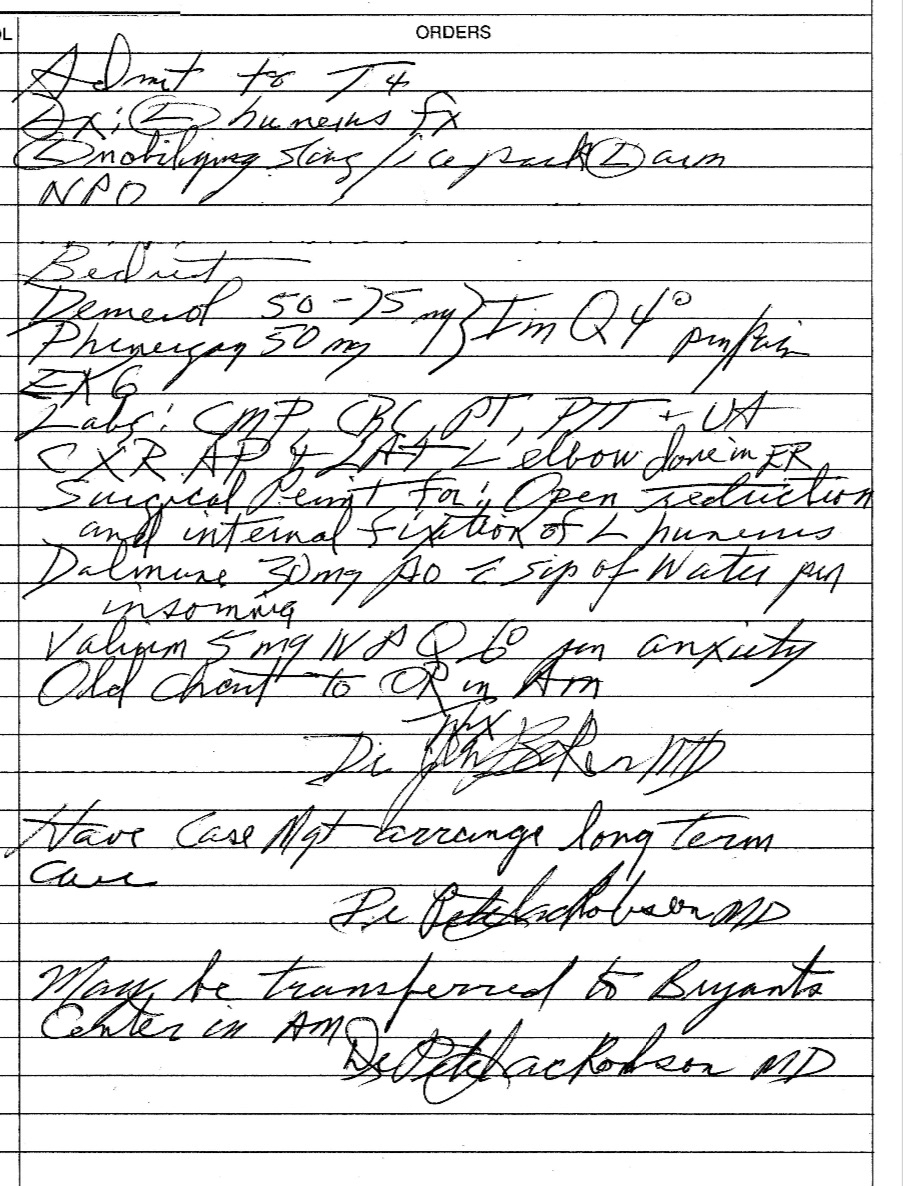 OL
ORDERS
Admit to T4
Dx: Ⓛ humerus fx
Immobilizing sling / ice pack Ⓛ arm
NPO
Bedrest
Demerol 50-75 mg } Im Q4° prn/pain
Phenergan 50 mg
EKG
Labs: CMP, CBC, PT, PTT + UA
CXR AP & LAT L elbow done in ER
Surgical Permit for: Open reduction
and internal fixation of L humerus
Dalmane 30mg PO c̄ sip of Water prn
insomnia
Valium 5 mg IVP Q 6° prn anxiety
Old chart to OR in Am
Thx
Dr Baker MD
Have Case Mgt arrange long term
care
Dr Pete Jackobson MD
May be transferred to Bryants
Center in AM
Dr Pete Jackobson MD